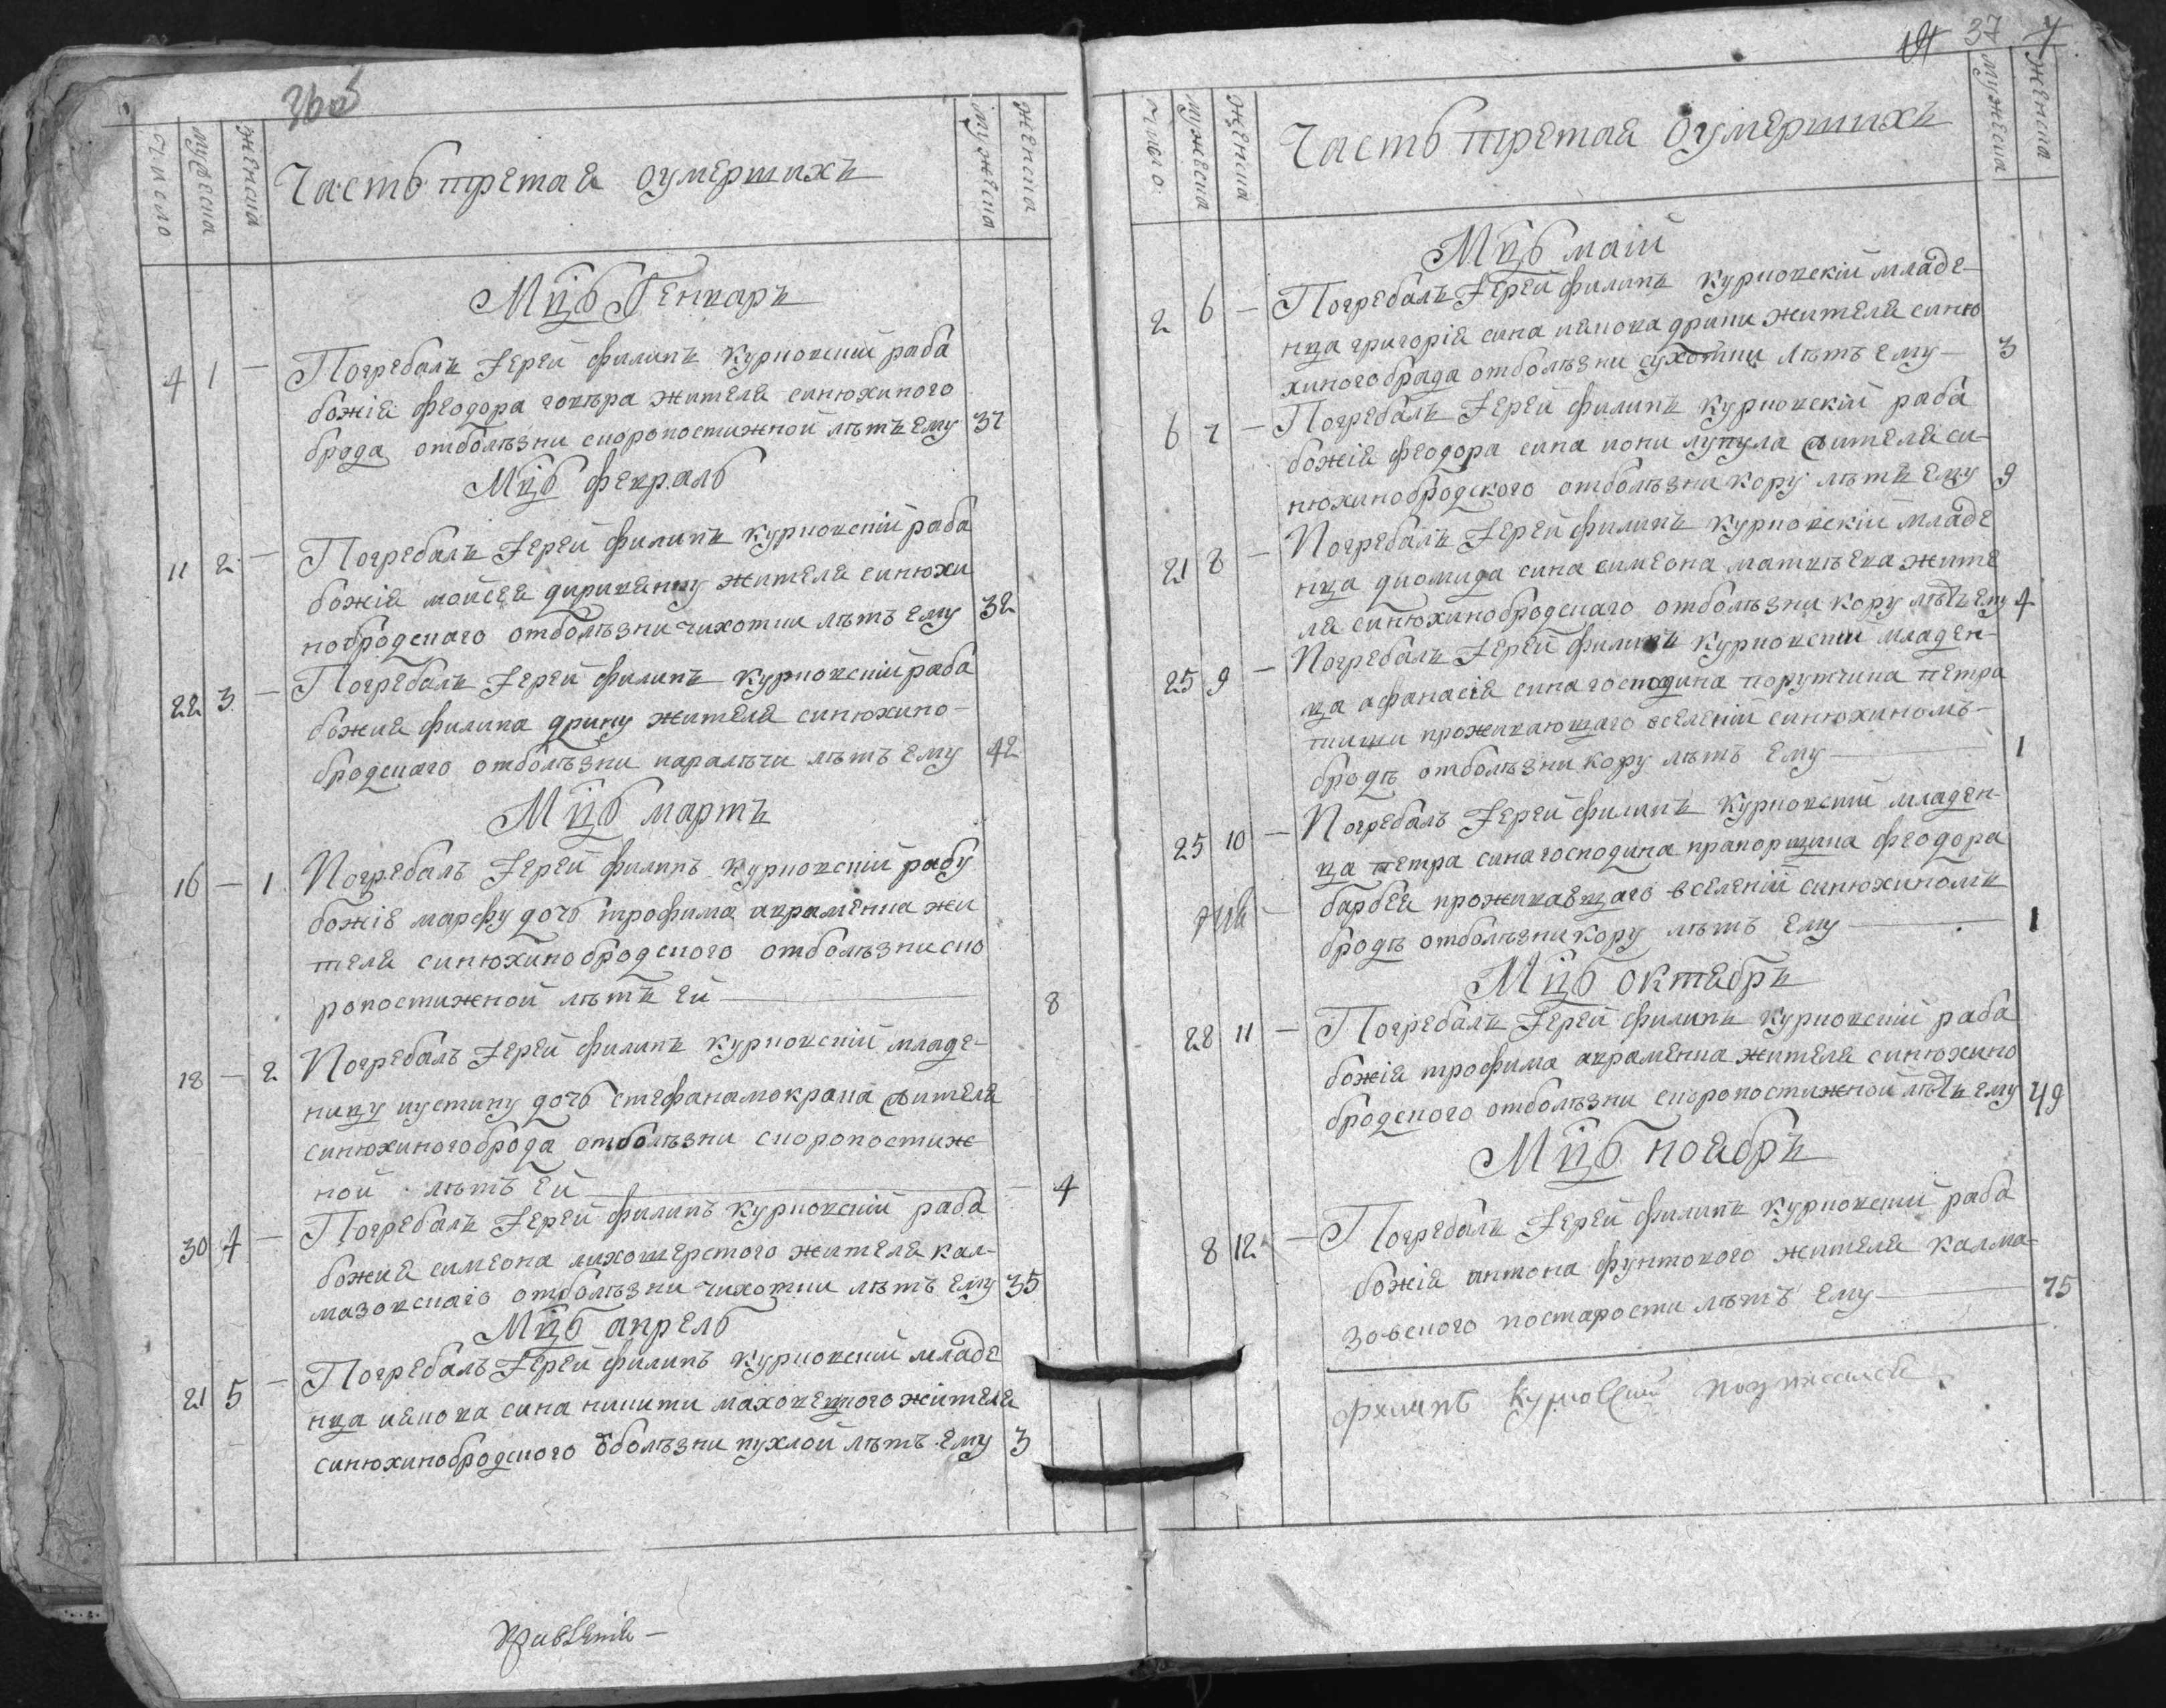 36об
число мужеска женска
Часть третая оумершихъ
мужеска женска
Мцъ Генваръ
4 1 — Погребалъ Іерей филипъ курповский раба
божія феодора говѣра жителя синюхиного
брода отболѣзни скоропостижной лѣтъ ему 37
Мцъ февраль
11 2 — Погребалъ Іерей филипъ курповскій раба
божія мойсея дириванну жителя синюхи
нобродскаго отболѣзни чихотки лѣтъ ему 32
22 3 — Погребалъ Іерей филипъ курповскій раба
божия филипа дрипу жителя синюхино-
бродскаго отболѣзни паралѣчи лѣтъ ему 42
Мцъ мартъ
16 — 1 Погребалъ Іерей филипъ курповскій рабу
божію марфу дочъ трофима авраменка жи
теля синюхинобродского отболѣзни ско
ропостижной лѣтъ ей — 8
18 — 2 Погребалъ Іерей филипъ курповскій младе-
ницу иустину дочъ стефана мокрака жителя
синюхиногоброда отболѣзни скоропостиж
ной лѣтъ ей — 4
30 4 — Погребалъ Іерей филипъ курповскій раба
божия симеона лихошерстого жителя кал-
мазовскаго отболѣзни чихотки лѣтъ ему 35
Мцъ апрелъ
21 5 — Погребалъ Іерей филипъ курповский младе
нца иякова сина никити маховецкого жителя
синюхинобродского отболѣзни пухлой лѣтъ ему 3
37
число мужеска женска
Часть третая оумершихъ
мужеска женска
Мцъ маій
2 6 — Погребалъ Іерей филипъ курповскій младе-
нца григорія сина иякова дрипи жителя синю
хиногоброда отболѣзни сухотки лѣтъ ему — 3
6 7 — Погребалъ Іерей филипъ курповскій раба
божія феодора сина иони лупула жителя си-
нюхинобродского отболѣзни кору лѣтъ ему 9
21 8 — Погребалъ Іерей филипъ курповскій младе
нца диомида сина симеона матвѣева жите
ля синюхинобродскаго отболѣзни кору лѣтъ ему 4
25 9 — Погребалъ Іерей филипъ курповский младен-
ца афанасія сина господина порутчика петра
проживающаго вселеній синюхиномъ-
бродѣ отболѣзни кору лѣтъ ему — 1
25 10 — Погребалъ Іерей филипъ курповский младен-
ца петра сина господина прапорщика феодора
барбея проживающаго вселеній синюхиномъ
бродѣ отболѣзни кору лѣтъ ему — 1
Мцъ октябръ
28 11 — Погребалъ Іерей филипъ курповскій раба
божія трофима авраменка жителя синюхино
бродского отболѣзни скоропостижной лѣтъ ему 49
Мцъ ноябръ
8 12 — Погребалъ Іерей филипъ курповский раба
божія антона фунтового жителя калма-
зовского постарости лѣтъ ему — 75
филипъ курповский подписался